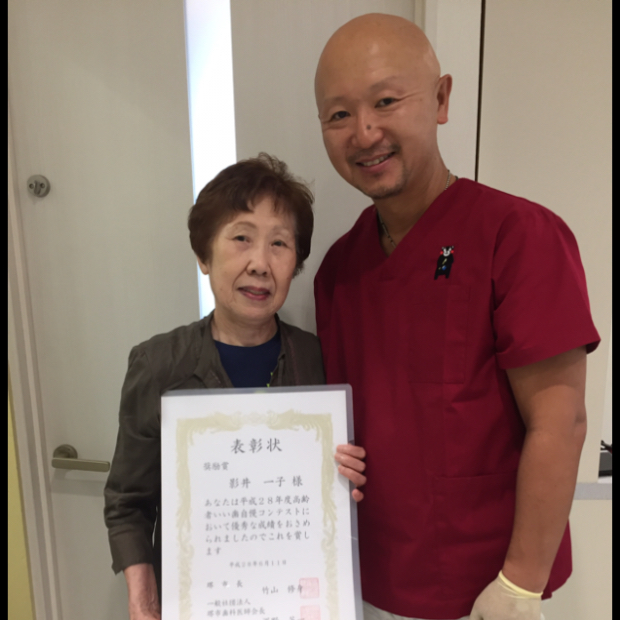 表彰状
影井 一子 様
あなたは平成28年度高齢
者いい歯自慢コンテストに
おいて優秀な成績をおさめ
られましたのでこれを賞し
ます
堺市長 竹山 修身
一般社団法人
堺市歯科医師会会長